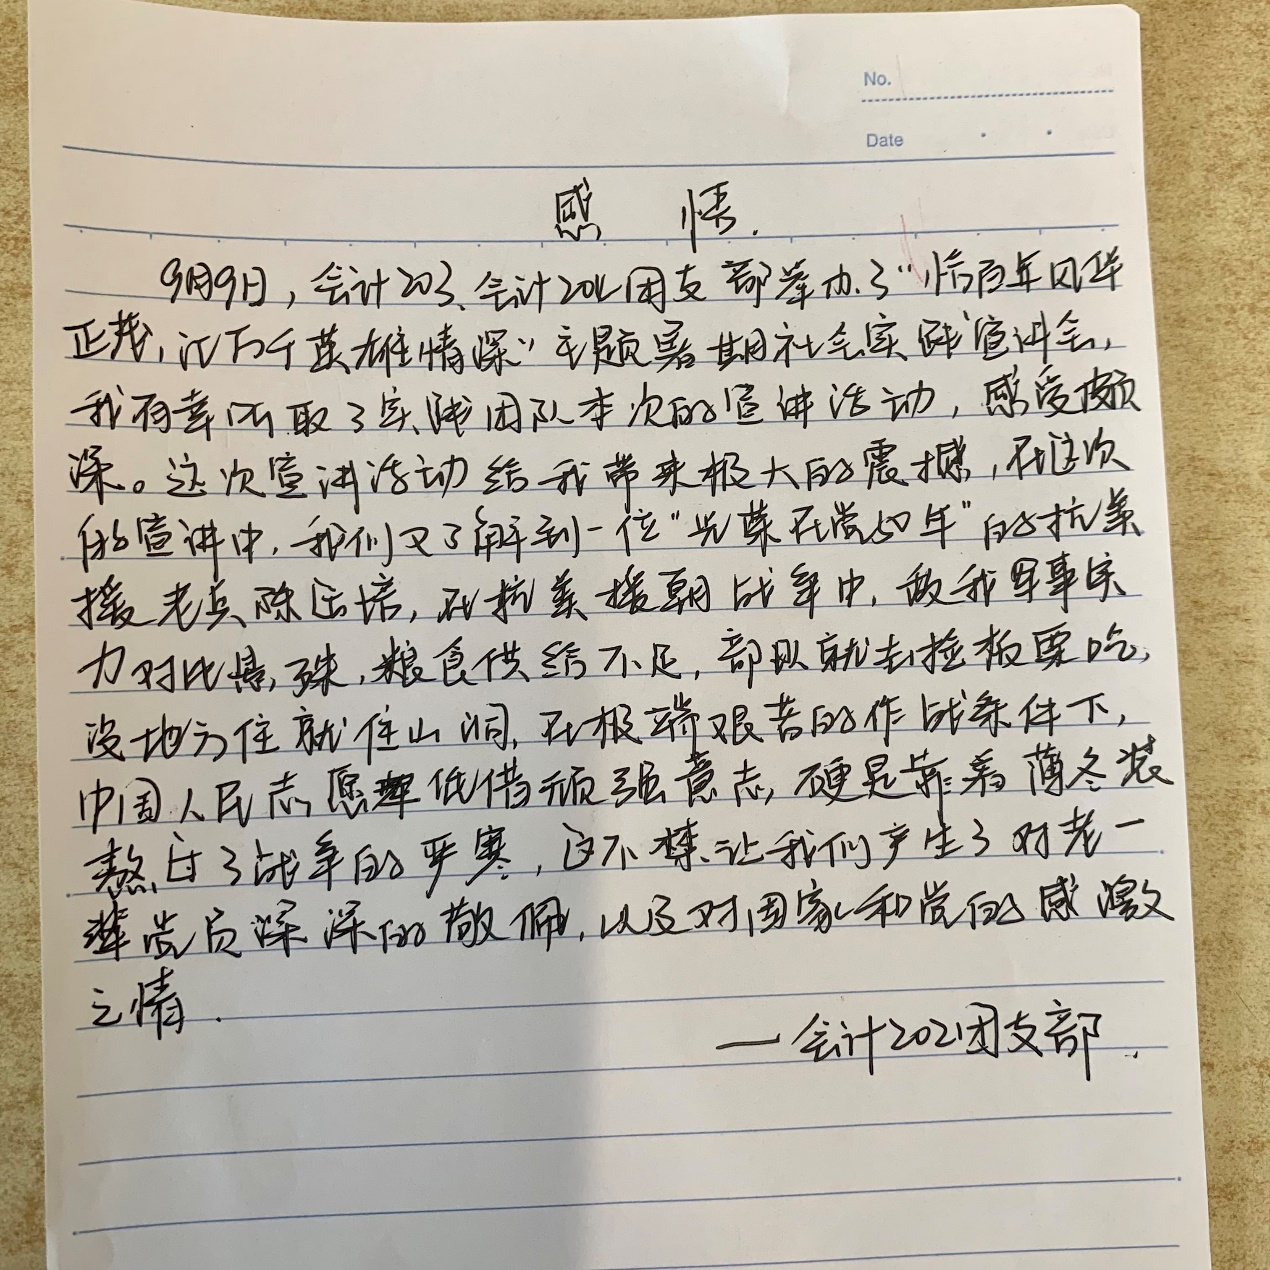 No.
Date
感 悟.
9月9日，会计203、会计204团支部举办了“恰百年风华
正茂，汇万千英雄情深”主题暑期社会实践宣讲会，
我有幸听取了实践团队本次的宣讲活动，感受颇
深。这次宣讲活动给我带来极大的震撼，在这次
的宣讲中，我们又了解到一位“光荣在党50年”的抗美
援老兵陈 培，在抗美援朝战争中，敌我军事实
力对比悬殊，粮食供给不足，部队就去捡板栗吃，
没地方住就住山洞，在极端艰苦的作战条件下，
中国人民志愿军凭借顽强意志，硬是靠着薄冬装
熬过了战争的严寒，这不禁让我们产生了对老一
辈党员深深的敬佩，以及对国家和党的感激
之情.
—会计2021团支部.